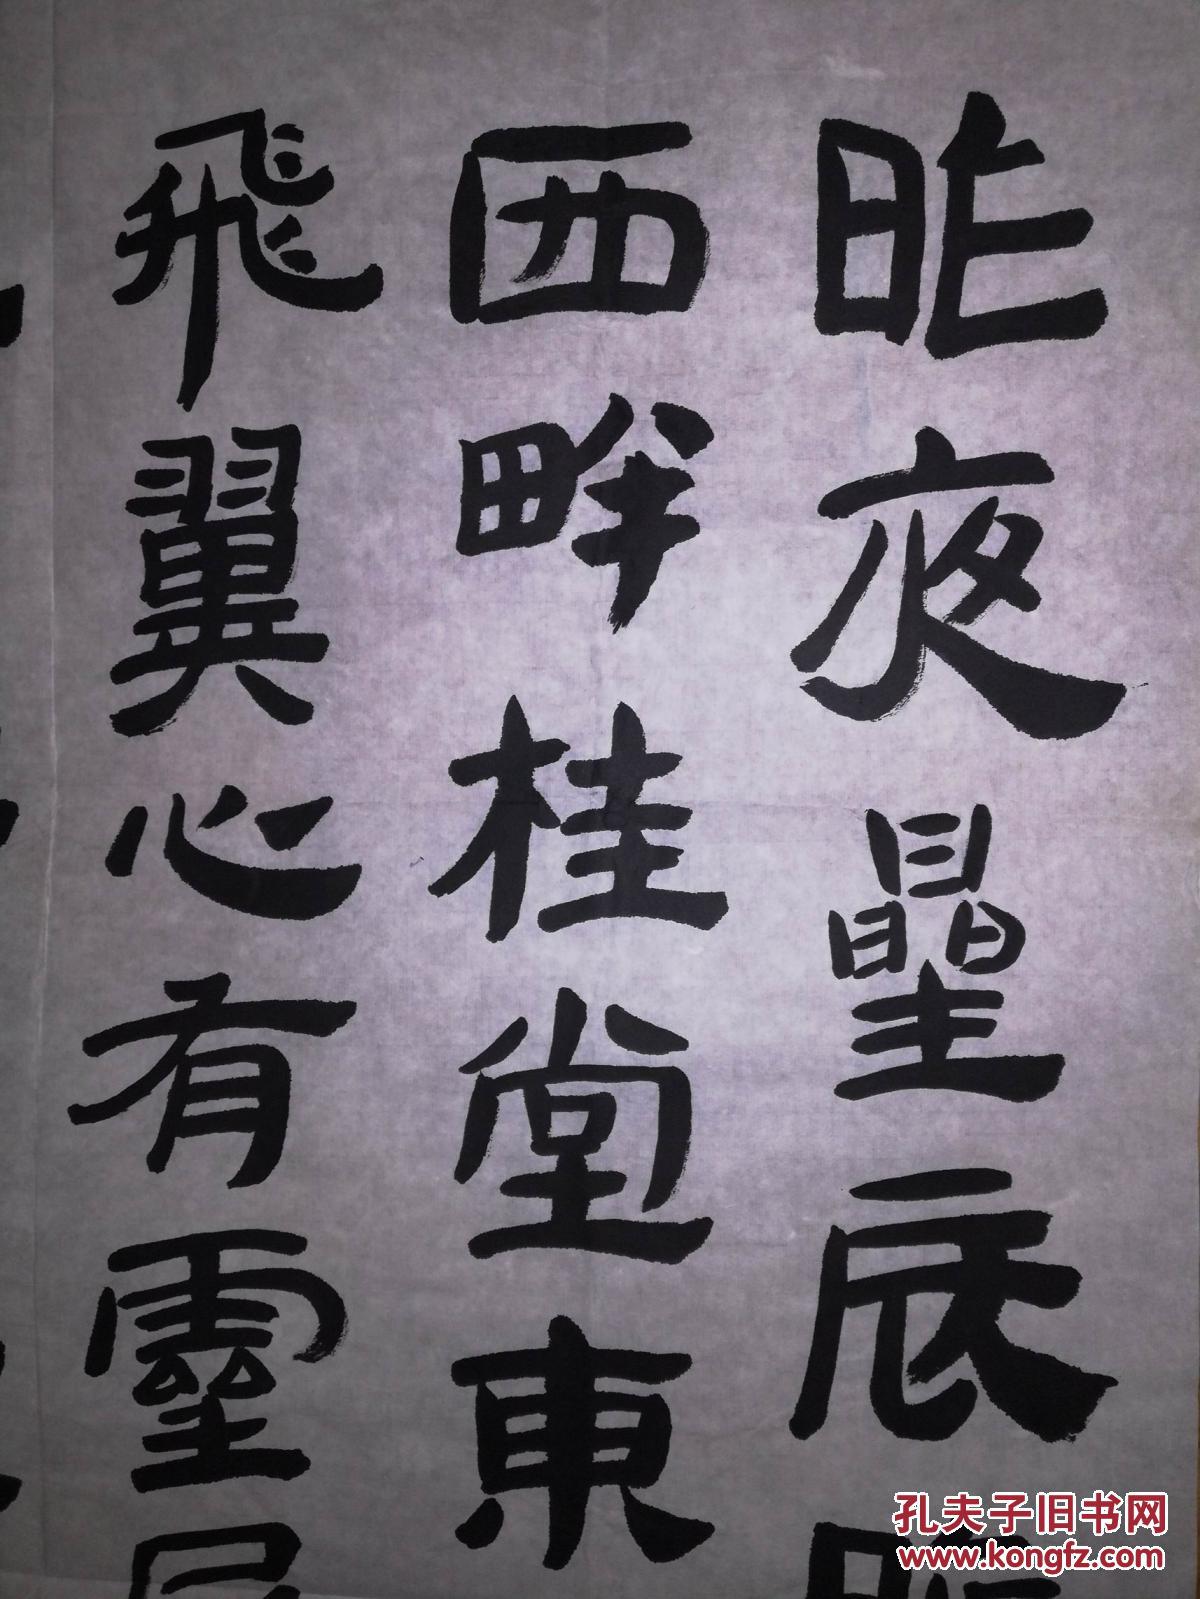 昨夜曐辰
西畔桂堂東
飛翼心有靈
孔夫子旧书网
www.kongfz.com